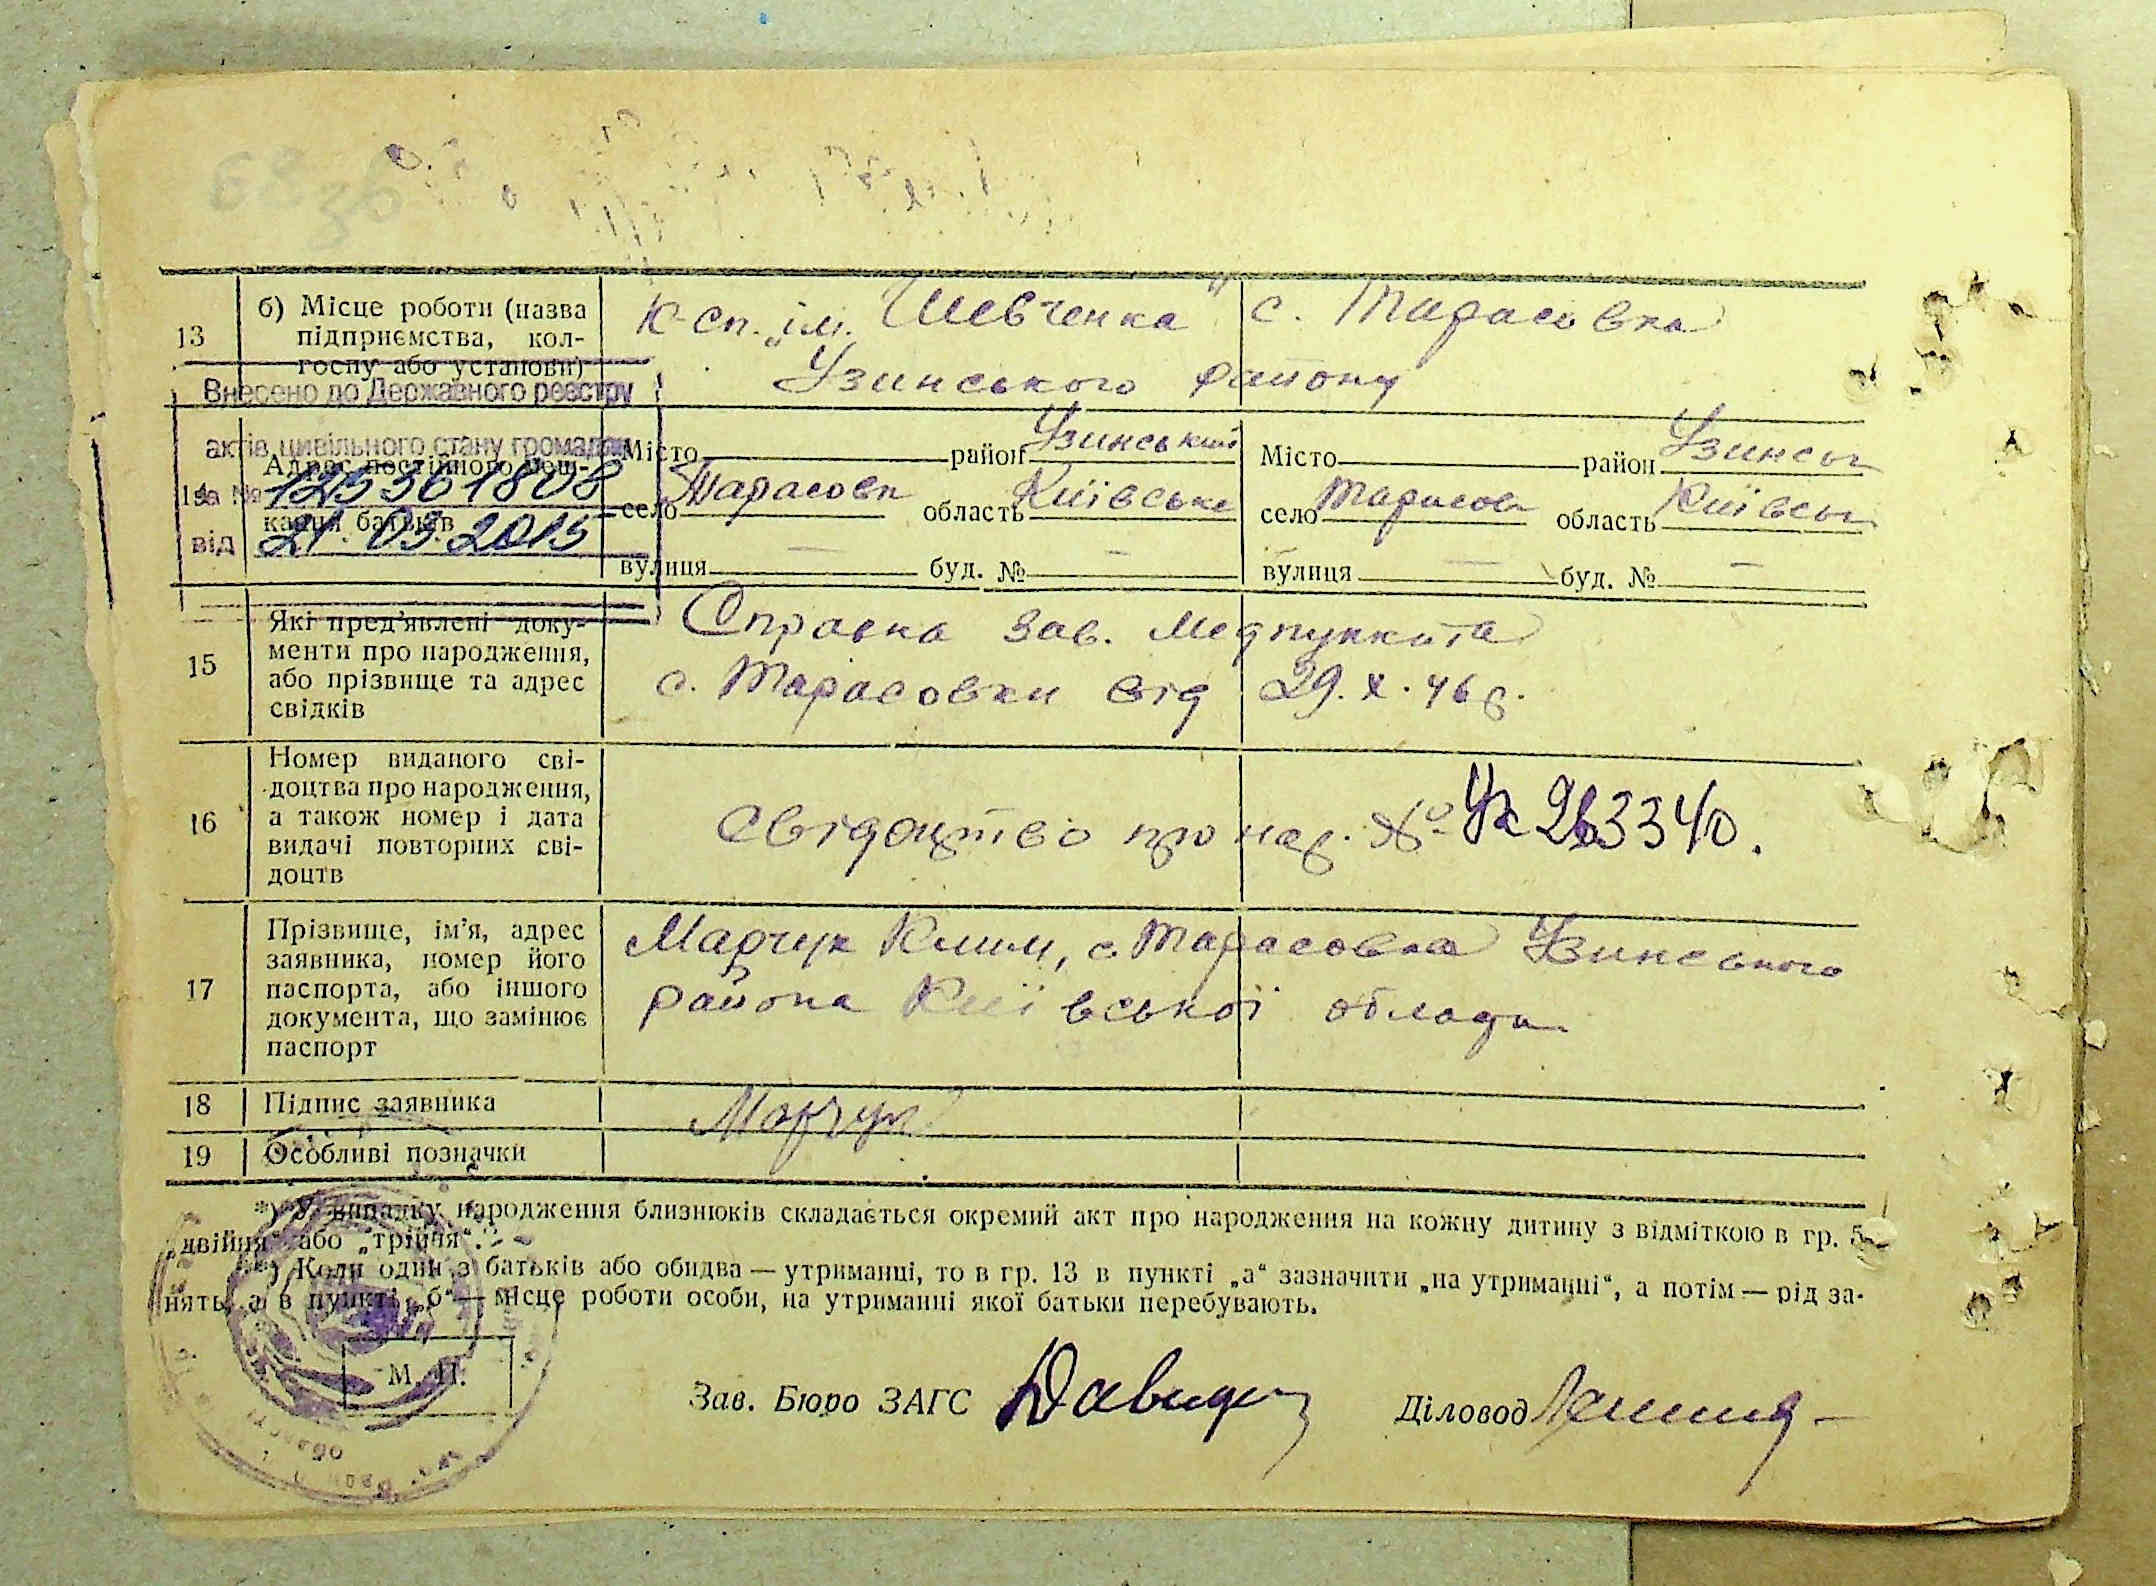 13
б) Місце роботи (назва
підприємства, кол-
госпу або установи)
К-сп. „ім. Шевченка" с. Тарасовка
Узинського району
Внесено до Державного реєстру
актів цивільного стану громадян
за № 1253361808
від 21.03.2015
14
Адрес постійного меш-
кання батьків
Місто район Узинський
село Тарасовка область Київська
вулиця — буд. № —
Місто район Узинськ
село Тарасов область Київськ
вулиця — буд. № —
15
Які пред'явлені доку-
менти про народження,
або прізвище та адрес
свідків
Справка Зав. Медпункта
с. Тарасовки від 29.X.46 р.
16
Номер виданого сві-
доцтва про народження,
а також номер і дата
видачі повторних сві-
доцтв
Свідоцтво про нар. № Ук 263340.
17
Прізвище, ім'я, адрес
заявника, номер його
паспорта, або іншого
документа, що замінює
паспорт
Марчук Клим, с. Тарасовка Узинського
района Київської області
18 Підпис заявника
Марчук
19 Особливі позначки
*) У випадку народження близнюків складається окремий акт про народження на кожну дитину з відміткою в гр. 5
„двійня" або „трійня".
**) Коли один з батьків або обидва — утриманці, то в гр. 13 в пункті „а" зазначити „на утриманні", а потім — рід за-
нять, а в пункті „б" — місце роботи особи, на утриманні якої батьки перебувають.
М. П.
Зав. Бюро ЗАГС
Діловод